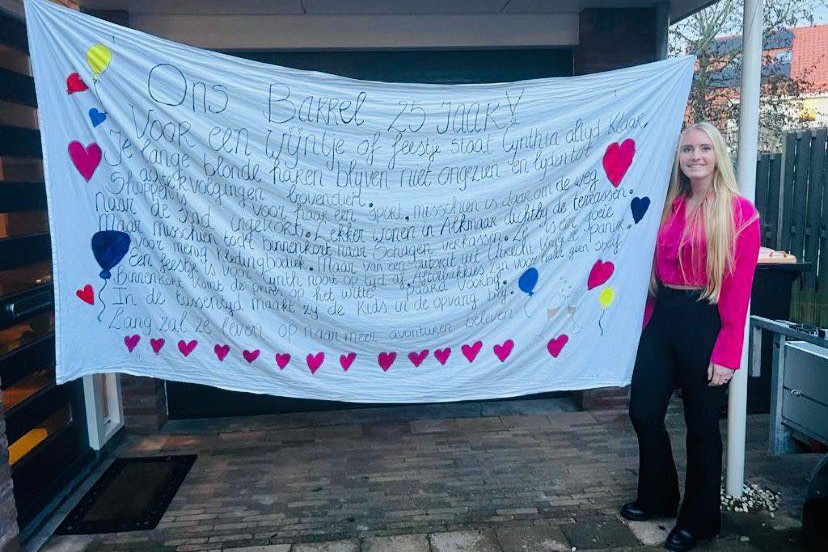 Ons Barrel 25 Jaar!
Voor een wijntje of feestje staat Cynthia altijd klaar.
Je lange blonde haren blijven niet ongezien en leiden tot
achtervolgingen bovendien.
Shoppen voor haar een sport, misschien is daarom de weg
naar de Stad ingekort. Lekker wonen in Alkmaar dichtbij de terrassen.
Maar misschien toch binnenkort naar Schagen verkassen. Ze is een goeie
voor menig kledingboetiek. Maar van een outfit uit Utrecht in paniek
Een feestje is voor Cynth nooit op tijd voorbij.
Binnenkort komt de prins op het witte paard voorbij.
In de tussentijd maakt zij de kids in de opvang blij.
Lang zal ze leven op naar meer avonturen beleven